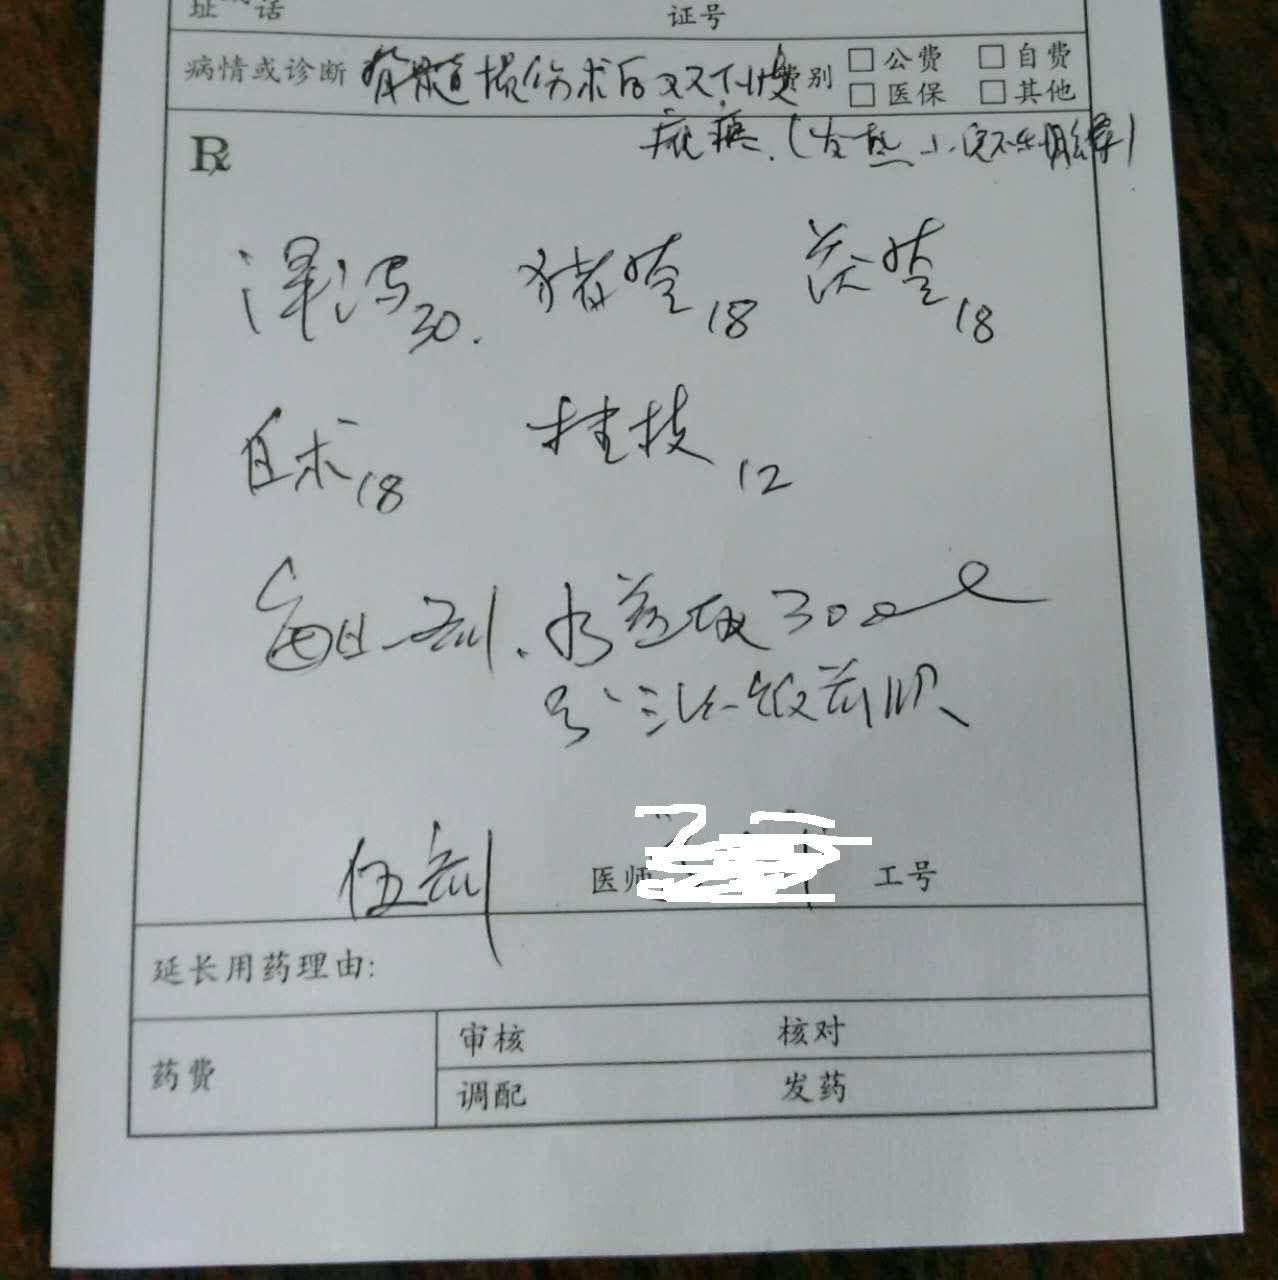 址 话 证号
病情或诊断 脊髓损伤术后双下肢 费别 □公费 □自费
□医保 □其他
瘫痪.(发热
R
泽泻30. 猪苓18 茯苓18
白术18 桂枝12
每日一剂.水煎取300ml
分三次饭前服
伍剂 医师 工号
延长用药理由:
药费 审核 核对
调配 发药